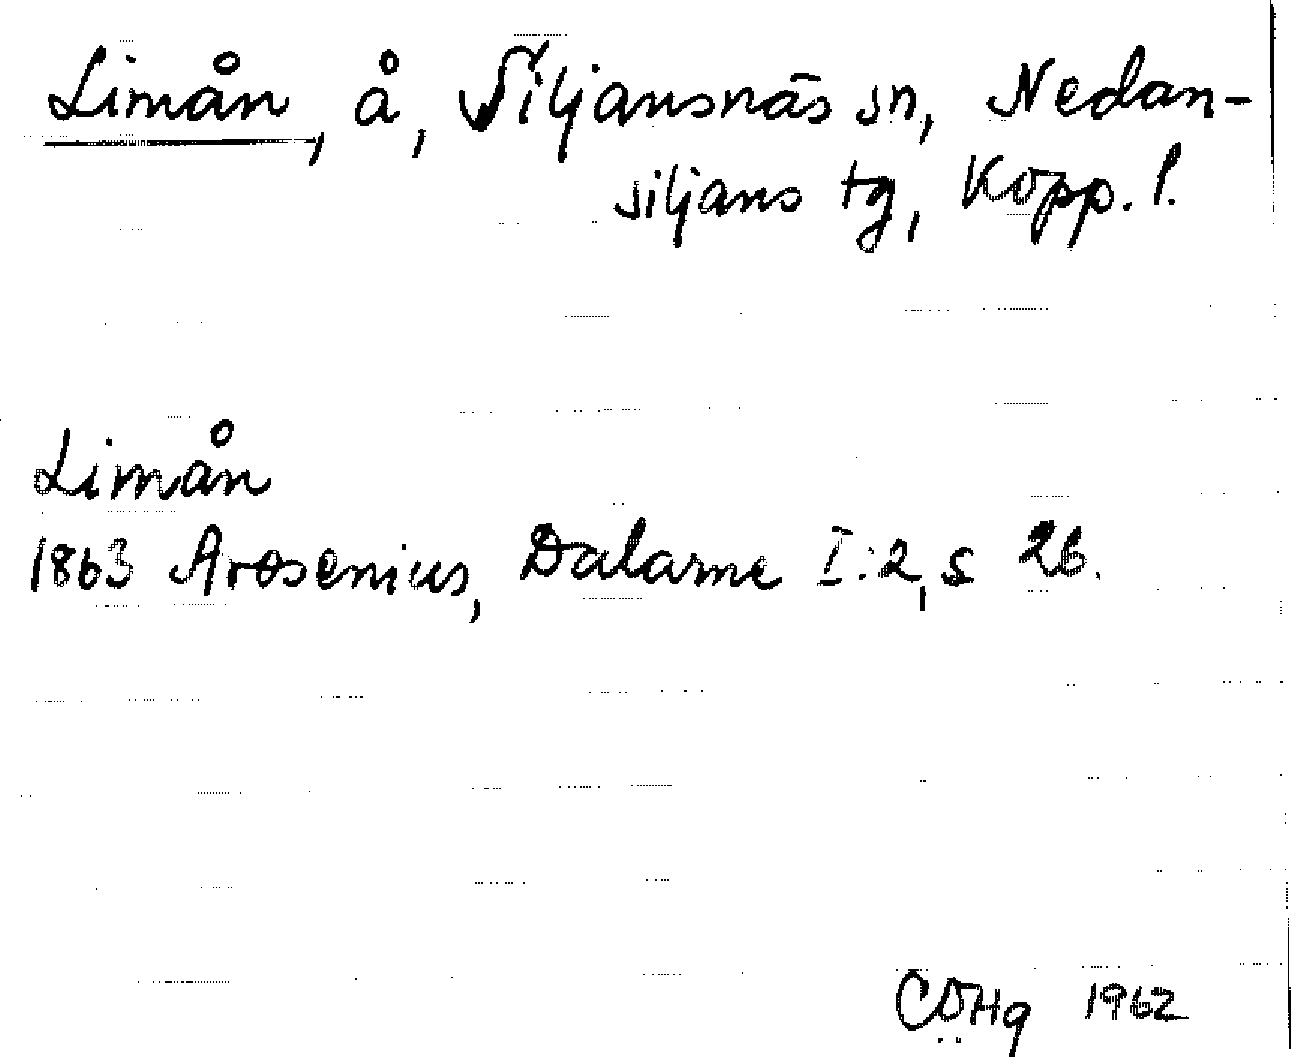 Limån, å, Siljansnäs sn, Nedan-
siljans tg, Kopp. l.
Limån
1863 Arosenius, Dalarne I:2, s 26.
COHg 1962